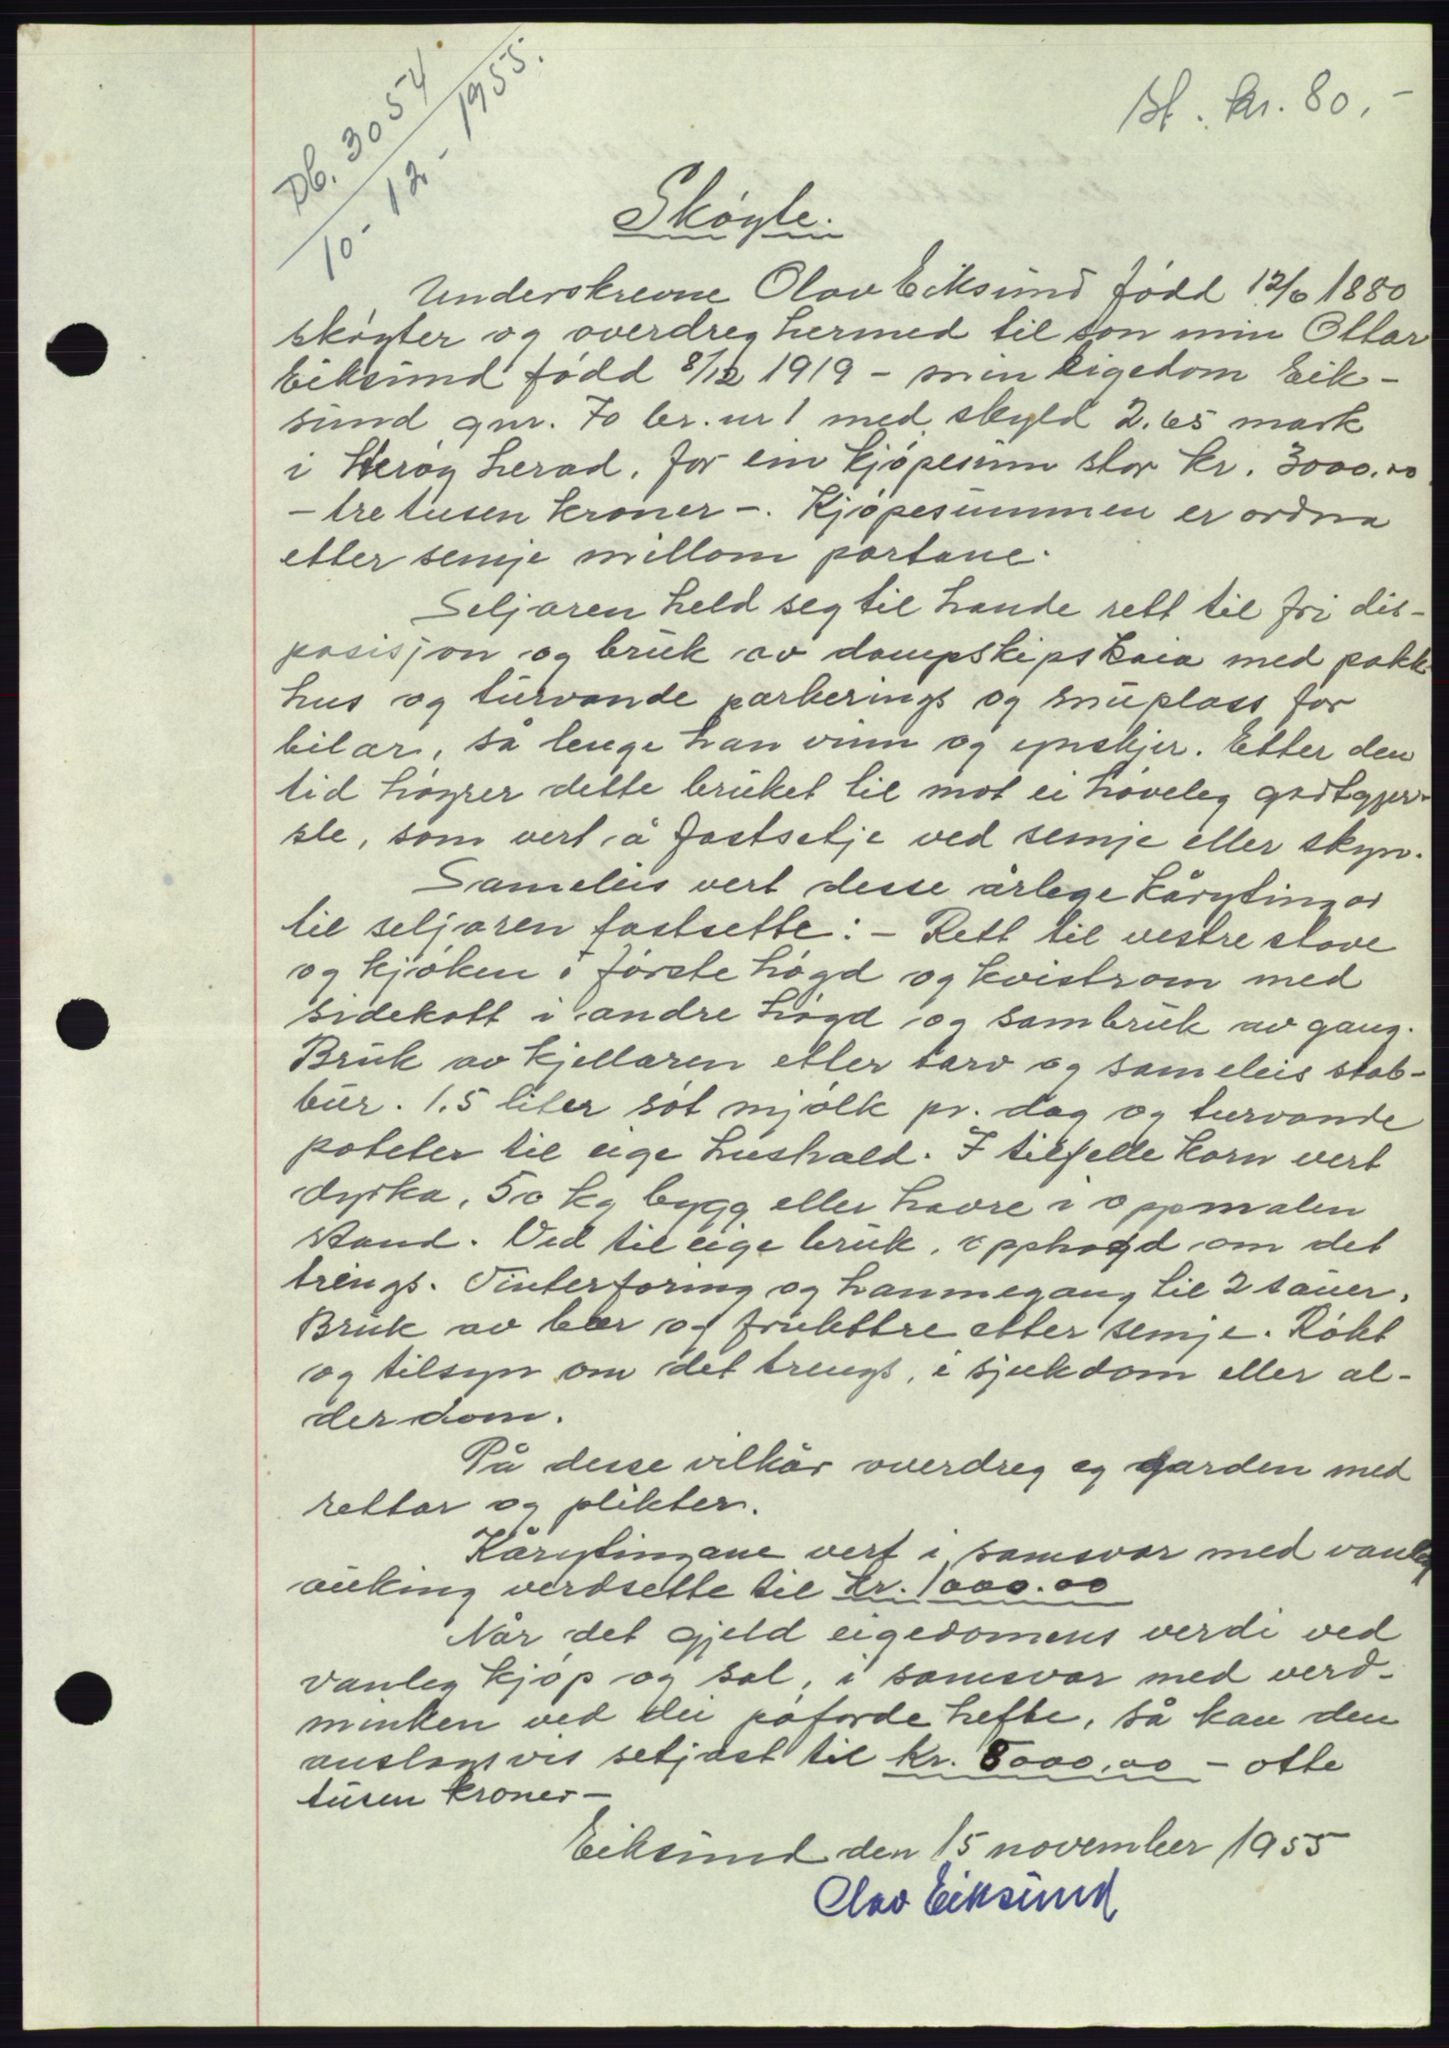 Db. 3054
10-12-1955.
St. kr. 80,-
Skøyte.
Underskrevne Olav Eiksund fødd 12/6 1880
skøyter og overdreg hermed til son min Ottar
Eiksund fødd 8/12 1919 - min eigedom Eik-
sund gnr. 70 br. nr 1 med skyld 2.65 mark
i Herøy herad, for ein kjøpesum stor kr. 3000.00
- tre tusen kroner -. Kjøpesummen er ordna
etter semje millom partane.
Seljaren held seg til hande rett til fri dis-
posisjon og bruk av dampskipskaia med pakk-
hus og turvande parkerings og snuplass for
bilar, så lenge han vinn og ynskjer. Etter den
tid høyrer dette bruket til mot ei høveleg godtgjer-
sle, som vert å fastsetje ved semje eller skyn.
Sameleis vert desse årlege kårytingar
til seljaren fastsette: - Rett til vestre stove
og kjøken i første høgd og kvistrom med
sidekott i andre høgd og sambruk av gang.
Bruk av kjellaren etter tarv og sameleis stab-
bur. 1.5 liter søt mjølk pr. dag og turvande
poteter til eige hushald. I tilfelle korn vert
dyrka, 50 kg bygg eller havre i oppmalen
stand. Ved til eige bruk, opphogd om det
trengs. Vinterforing og hamnegang til 2 sauer.
Bruk av bær og frukttre etter semje. Røkt
og tilsyn om det trengs, i sjukdom eller al-
derdom.
På desse vilkår overdreg eg garden med
rettar og plikter.
Kårytingane vert i samsvar med vanleg
auking verdsette til kr. 1000.00
Når det gjeld eigedomens verdi ved
vanleg kjøp og sal, i samsvar med verd-
minken ved dei påførde hefte, så kan den
anslagsvis setjast til kr. 8000.00 - otte
tusen kroner -
Eiksund den 15 november 1955
Olav Eiksund